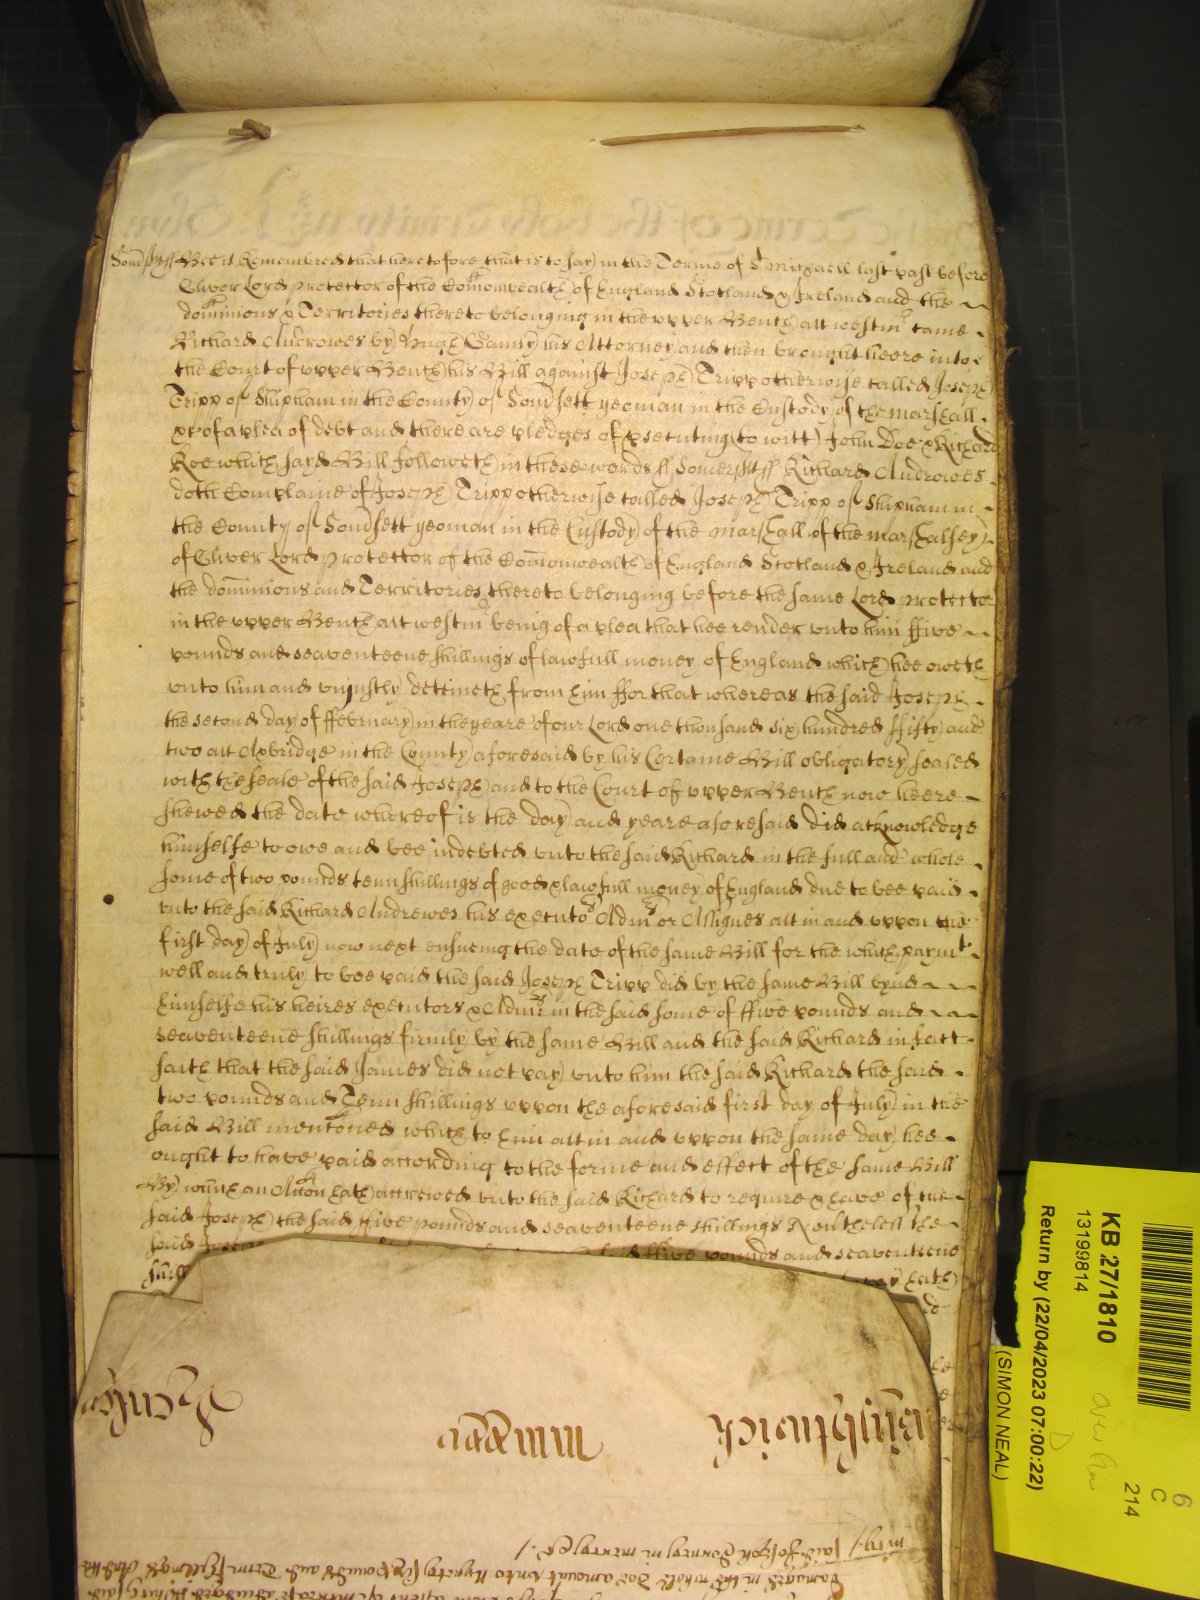 Som̃sett ss Bee it Remembred that heretofore that is to say in the Terme of St Michaell last past before
Oliver Lord Protector of the Com̃onwealth of England Scotland & Ireland and the
dominions & Territories thereto belonging in the upper Bench att Westmr came
Richard Androwes by Hugh his Attorney and then brought heere into
the Court of upper Bench his Bill against Joseph Tripp otherwise called Joseph
Tripp of Shipham in the County of Som̃sett yeoman in the Custody of the Marshall
&c of a plea of debt and there are pledges of psecuting (to witt) John Doe & Richard
Roe which said Bill followeth in these words ss Somersett ss Richard Androwes
doth Complaine of Joseph Tripp otherwise called Joseph Tripp of Shipham in
the County of Som̃sett yeoman in the Custody of the Marshall of the Marshalsey
of Oliver Lord Protector of the Com̃onwealth of England Scotland & Ireland and
the dom̃inions and Territories thereto belonging before the same Lord Protector
in the upper Bench att Westmr being of a plea that hee render unto him ffive
pounds and seaventeene shillings of lawfull money of England which hee oweth
unto him and unjustly deteineth from him ffor that whereas the said Joseph
the second day of ffebruary in the yeare of our Lord one thousand six hundred ffifty and
two att Axbridge in the County aforesaid by his Certaine Bill obligatory sealed
with the seale of the said Joseph and to the Court of upper Bench now heere
shewed the date whereof is the day and yeare aforesaid did acknowledge
himselfe to owe and bee indebted unto the said Richard in the full and whole
some of two pounds tenn shillings of good & lawfull money of England due to bee paid
unto the said Richard Andrewes his executors Admrs or Assignes att in and uppon the
first day of July now next ensueing the date of the same Bill for the which paymt
well and truly to bee paid the said Joseph Tripp did by the same Bill bynd
himselfe his heires executors & Admrs in the said some of ffive pounds and
seaventeene shillings firmly by the same Bill and the said Richard in fact
saith that the said James did not pay unto him the said Richard the said
two pounds and Tenn shillings uppon the aforesaid first day of July in the
said Bill menc̃oned which to him att in and uppon the same day hee
ought to have paid according to the forme and effect of the same Bill
By which an Acc̃on hath accrewed unto the said Richard to require & have of the
said Joseph the said ffive pounds and seaventeene shillings Nevertheless the
said Joseph ffive pounds and seaventeene
shill hath
KB 27/1810
13199814
Return by (22/04/2023 07:00:22)
(SIMON NEAL)
6
C
214
D